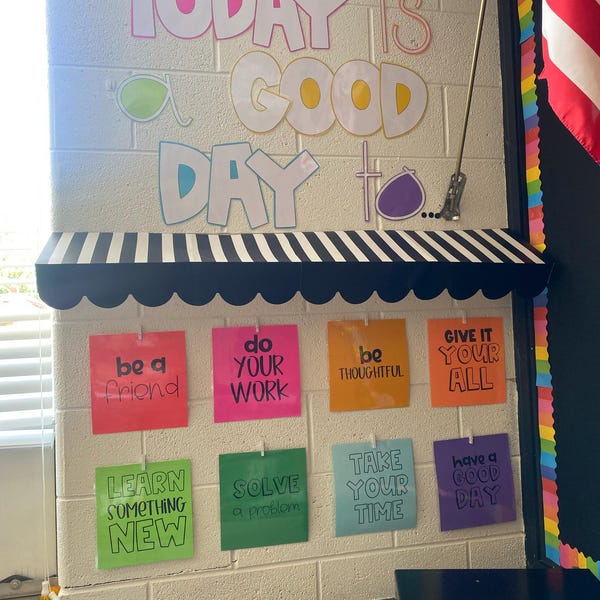 TODAY IS
a GOOD
DAY to...
be a
friend
do
YOUR
WORK
be
THOUGHTFUL
GIVE IT
YOUR
ALL
LEARN
SOMETHING
NEW
SOLVE
a problem
TAKE
YOUR
TIME
have a
GOOD
DAY